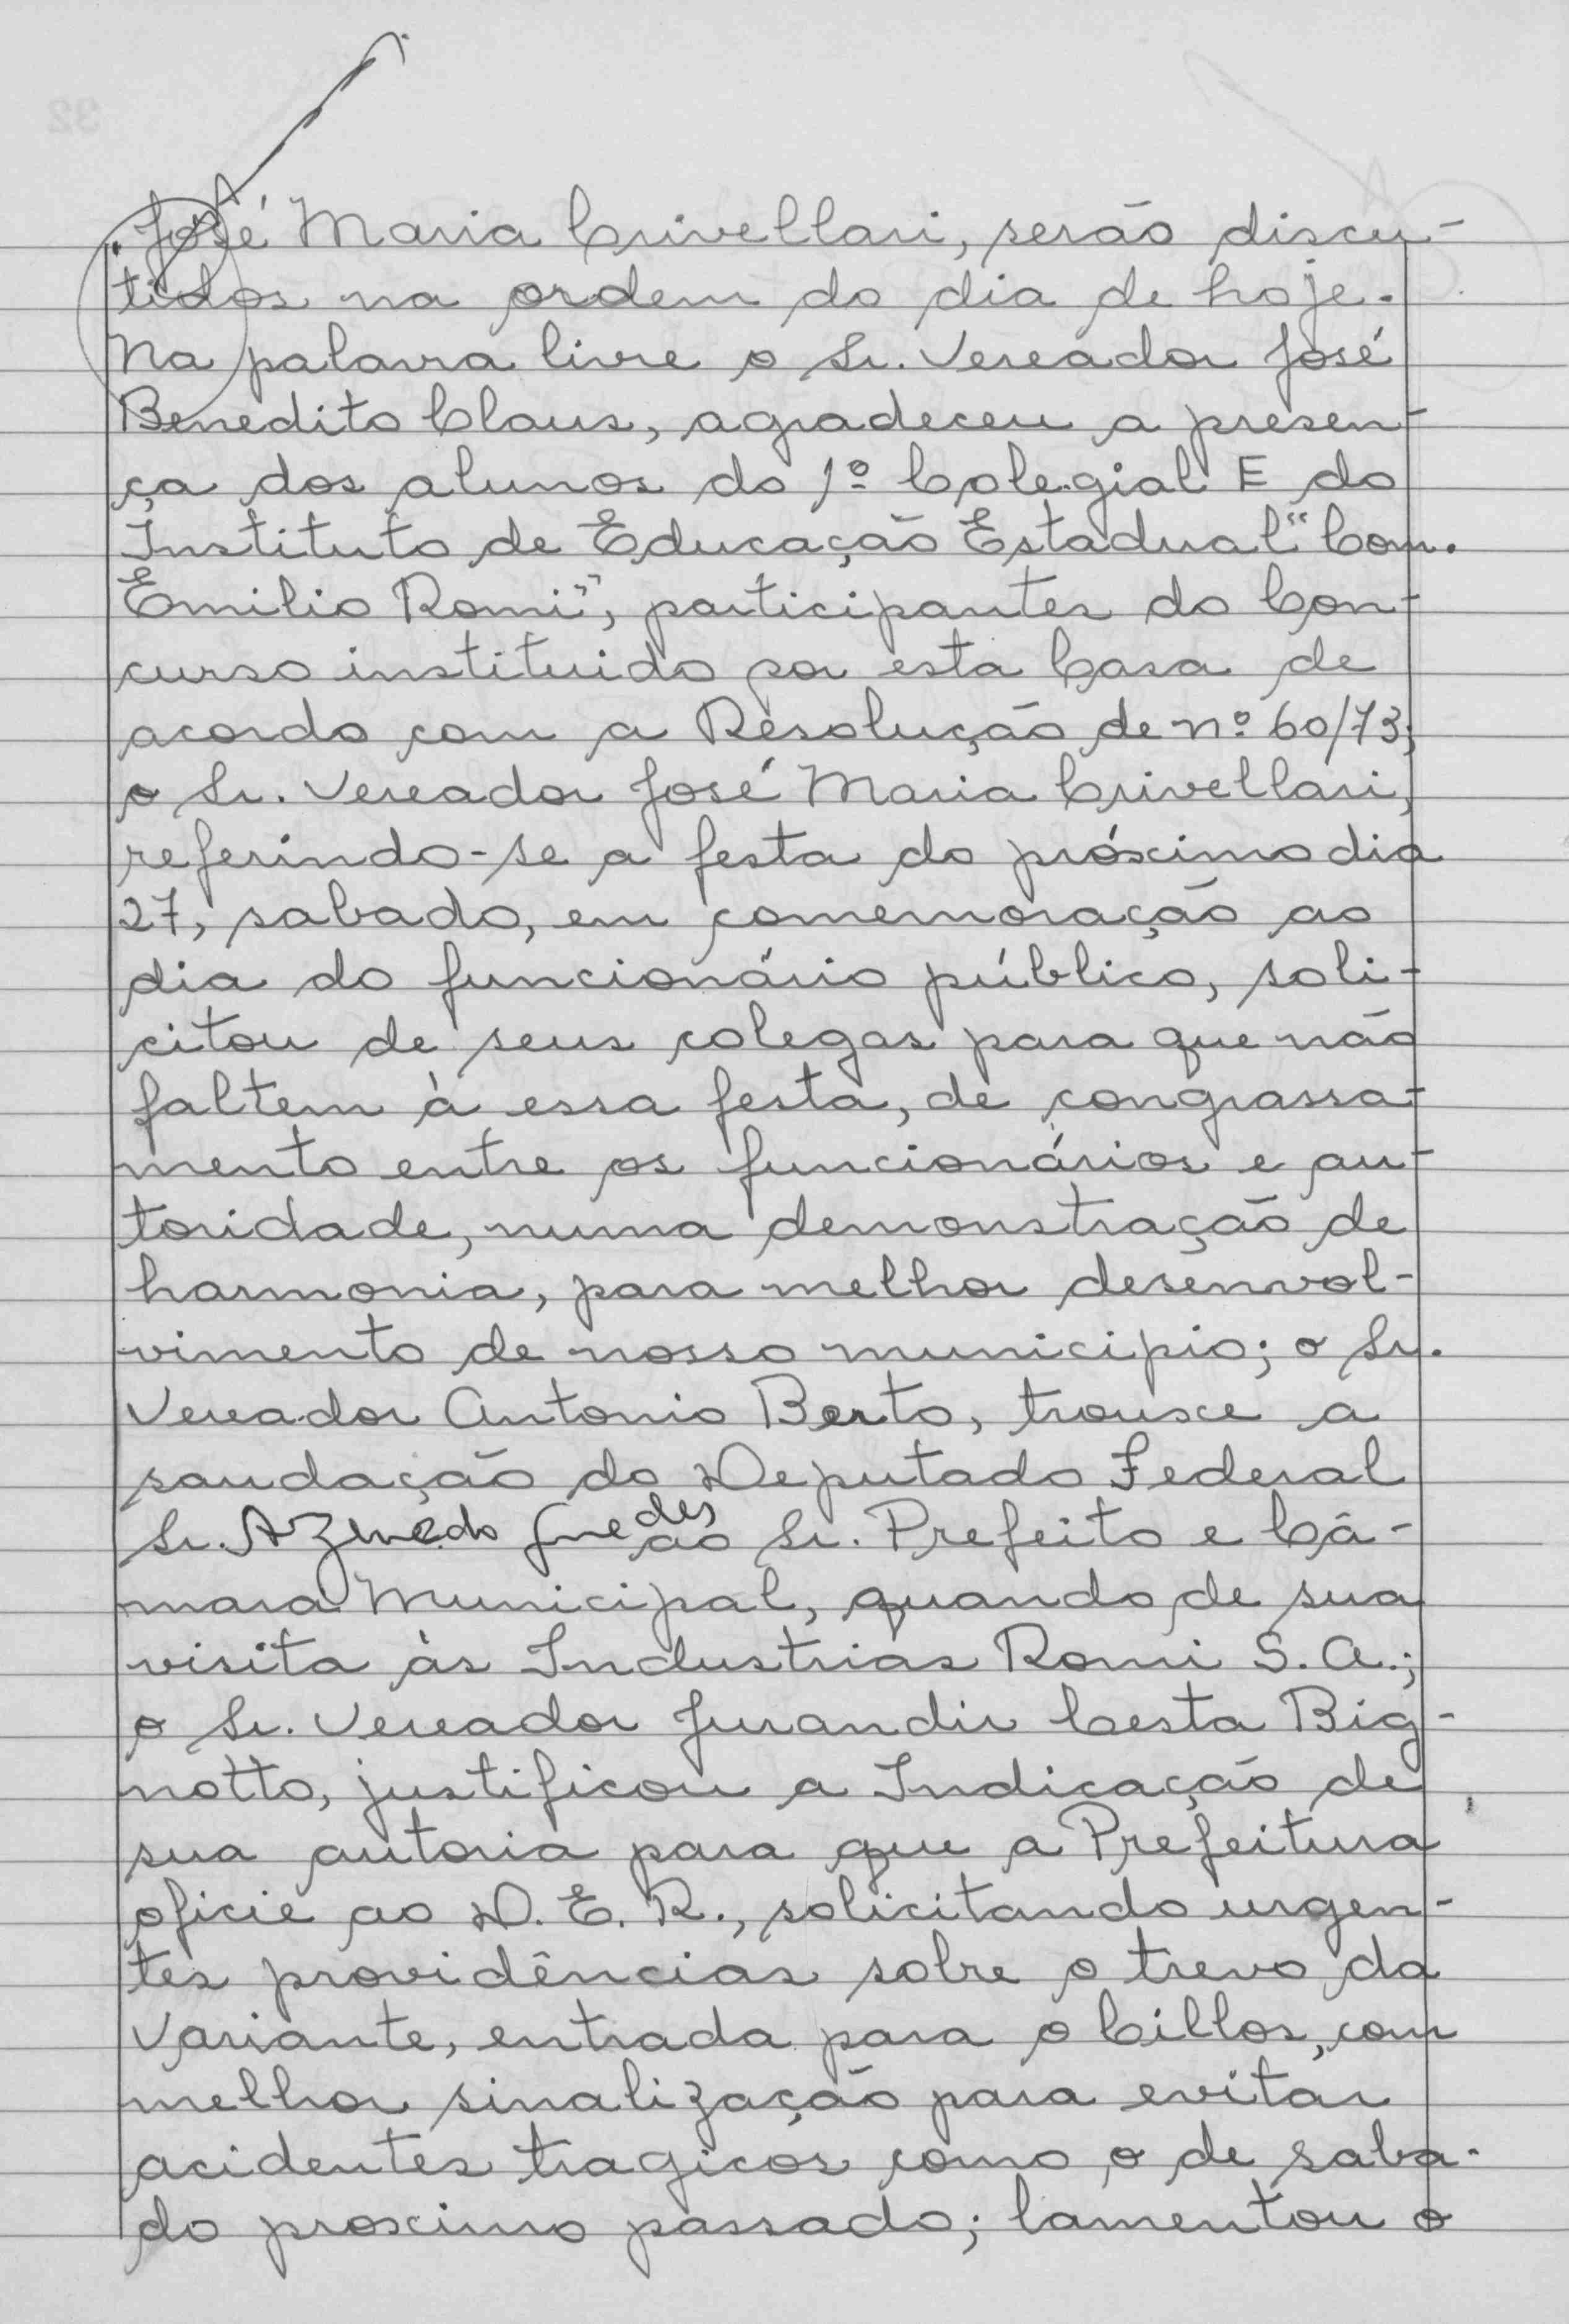 José Maria Crivellari, serão discu-
tidos na ordem do dia de hoje.
Na palavra livre o Sr. Vereador José
Benedito Claus, agradeceu a presen-
ça dos alunos do 1º Colegial E do
Instituto de Educação Estadual "Com.
Emilio Romi", participantes do Con-
curso instituido por esta Casa de
acordo com a Resolução de nº 60/73;
o Sr. Vereador José Maria Crivellari,
referindo-se a festa do próximo dia
27, sabado, em comemoração ao
dia do funcionário público, soli-
citou de seus colegas para que não
faltem à essa festa, de congrassa-
mento entre os funcionários e au-
toridade, numa demonstração de
harmonia, para melhor desenvol-
vimento de nosso municipio; o Sr.
Vereador Antonio Berto, trouxe a
saudação do Deputado Federal
Sr. Azevedo Guedes ao Sr. Prefeito e Câ-
mara Municipal, quando de sua
visita às Industrias Romi S.A.;
o Sr. Vereador Jurandir Cesta Big-
notto, justificou a Indicação de
sua autoria para que a Prefeitura
oficie ao D.E.R., solicitando urgen-
tes providências sobre o trevo da
Variante, entrada para o Cillos, com
melhor sinalização para evitar
acidentes tragicos como o de saba-
do proximo passado; lamentou o